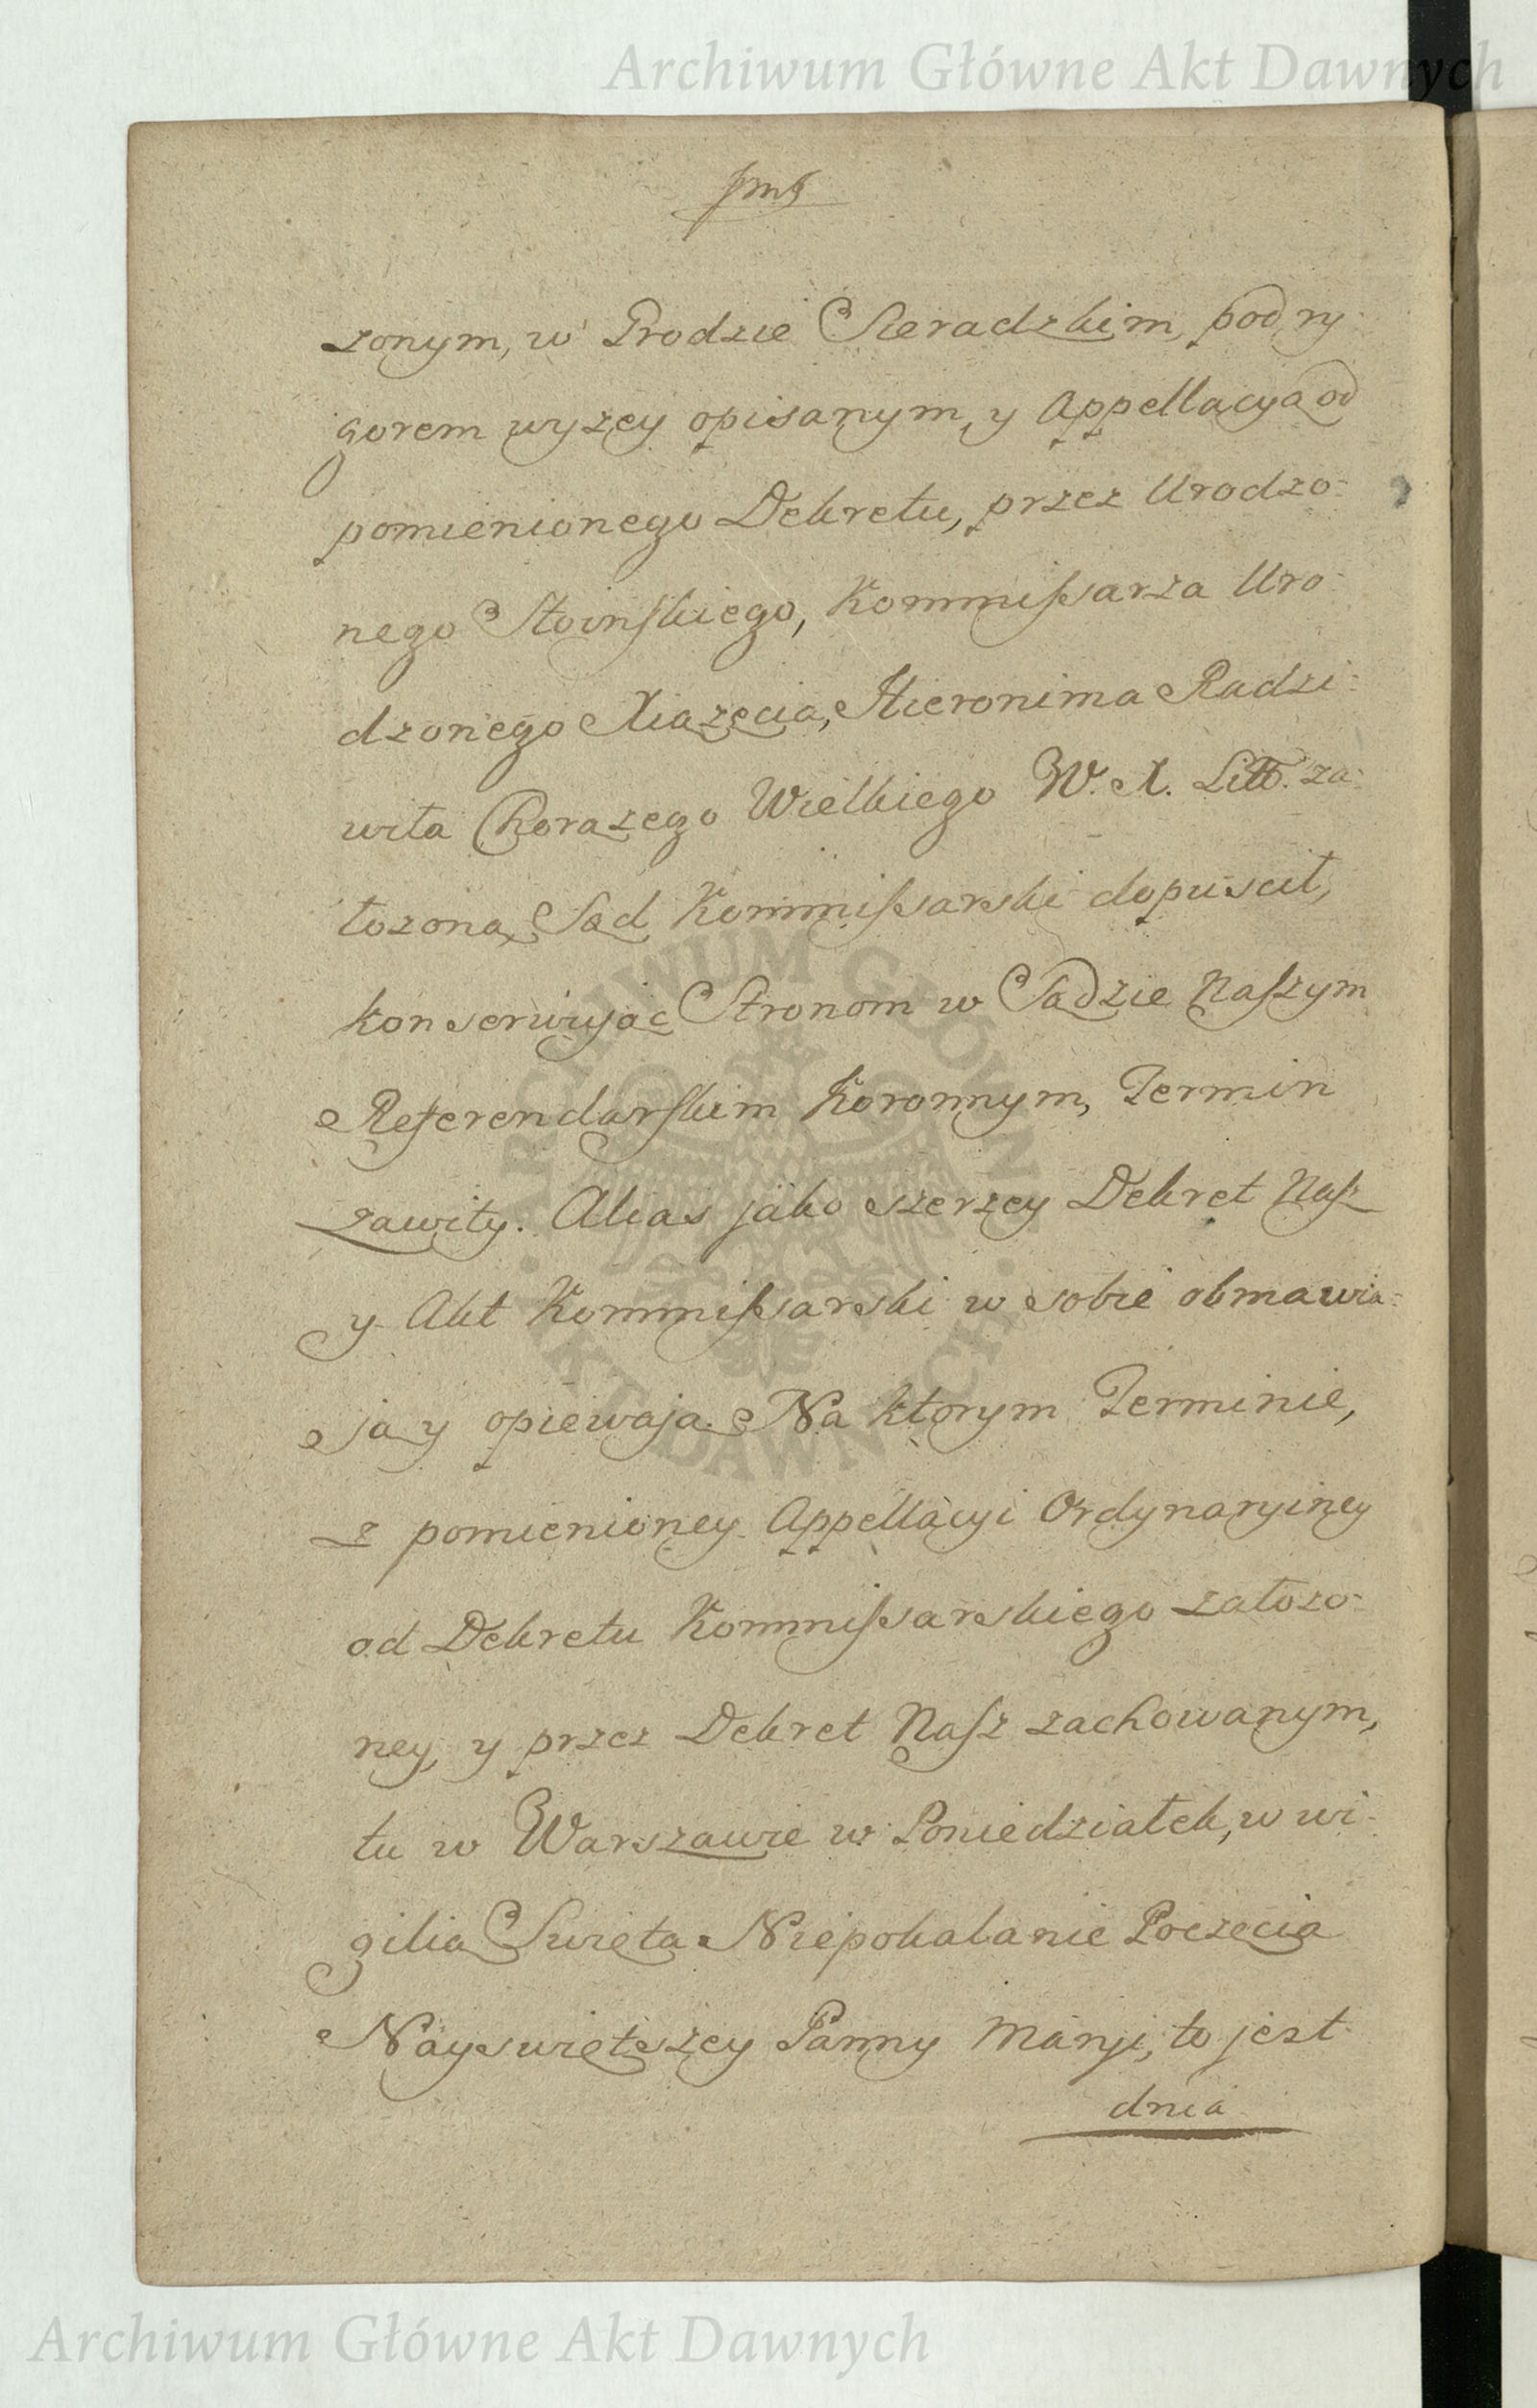 Archiwum Główne Akt Dawnych
zonym, w Grodzie Sieradzkim, pod ry-
gorem wyzey opisanym, y Appellacyą od
pomienionego Dekretu, przez Urodzo-
nego Stoinskiego, Kommissarza Uro-
dzonego Xiązęcia, Hieronima Radzi-
wiła Chorązego Wielkiego W. X. Litt. za-
łozoną, Sąd Kommissarski dopuscił,
konserwując Stronom w Sądzie Naszym
Referendarskim Koronnym, Termin
zawity. Alias jako szerzey Dekret Nasz
y Akt Kommissarski w sobie obmawia-
ją y opiewają. Na ktorym Terminie,
z pomienioney Appellacyi Ordynaryiney
od Dekretu Kommissarskiego załozo-
ney, y przez Dekret Nasz zachowanym,
tu w Warszawie w Poniedziałek, w wi-
gilią Swięta Niepokalanie Poczęcia
Nayswiętszey Panny Maryi, to jest
dnia
ARCHIWUM GŁÓWNE AKT DAWNYCH
Archiwum Główne Akt Dawnych